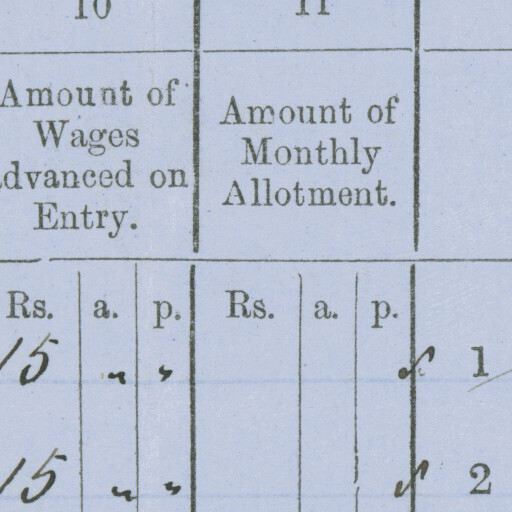 10 11
Amount of
Wages
advanced on
Entry.
Amount of
Monthly
Allotment.
Rs. a. p. Rs. a. p.
15 „ „ 1
15 „ „ 2